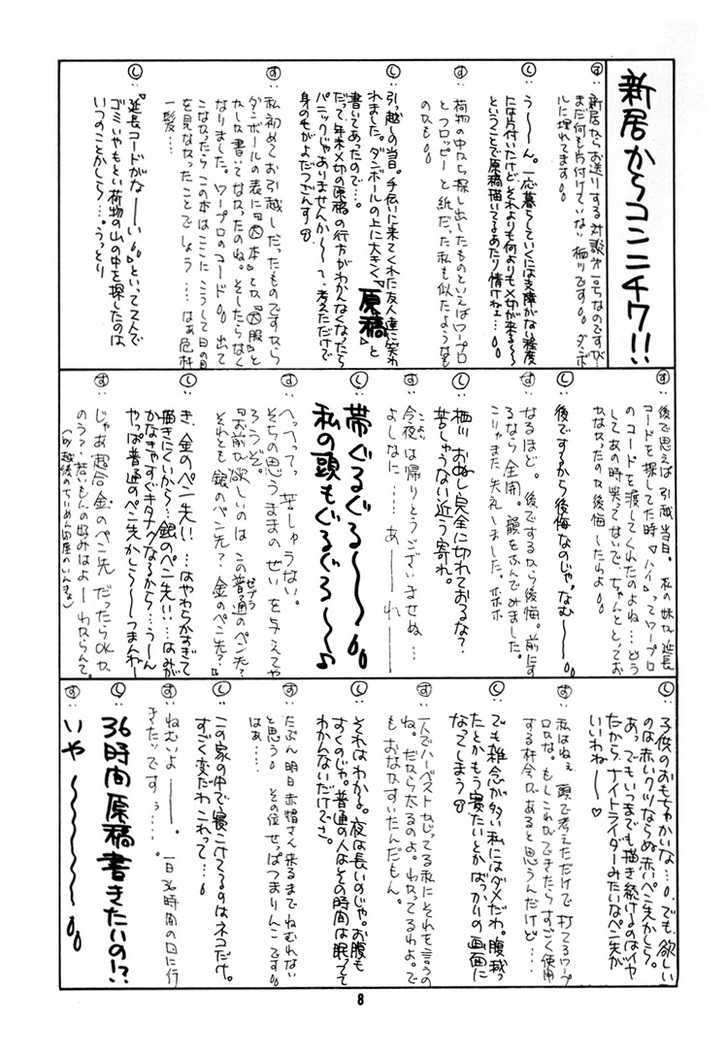 新居からコンニチワ!!
す:新居からお送りする対談第一号なのですが…
まだ何も片付けていない栖ッです。ダンボ
ールに埋れてます。
し:う〜ん。一応暮らしていくには支障がない程度
には片付いたけどそれよりも何よりも〆切が来る〜〜
ということで原稿描いてるあたり情けねェ…。
す:荷物の中から探し出したものといえばワープロ
とフロッピーと紙だった私も似たようなも
のかも
し:引っ越しの当日。手伝いに来てくれた友人達に笑わ
れました。ダンボールの上に大きく『原稿』と
書いてあったので…。
だって年末〆切の原稿の行方がわかんなくなったら
パニックじゃありませんか〜〜て、考えただけで
身の毛がよだつごんす
す:私初めてお引越しだったものですから
ダンボールの表に『本』とか『服』と
かしか書いてなかったのね。そしたらなく
なりました。ワープロのコード 出て
こなかったらこの本はここにこうして日の目
を見なかったことでしょう…はぁ危機
一髪…
し:『延長コードがな――い』といってんで
ゴミいやもとい荷物の山の中を探したのは
いつのことかしら…。うっとり
す:後で思えば引越し当日、私の妹が延長
コードを探してた時『ハイ』ってワープロ
のコードを渡してくれたのよね…どう
してあの時笑ってないで、ちゃんととってお
かなかったのか後悔したわよ
し:後でするから後悔なのじゃ。なむ――
す:なるほど。後でするなら後悔。前にす
るなら全開。韻をふんでみました。
こりゃまた失礼しました。ホホホ
し:栖川 おぬし完全に切れておるな?
苦しゅうない近う寄れ。
す:今夜は帰りとうございませぬ…
よしなに……あ――れ――
し:帯ぐるぐる〜〜
私の頭もぐるぐる〜〜♪
す:へっへっへっ 苦しゅうない。
そちの思うままのぜいを与えてや
ろうぞ。
『お前が欲しいのは この普通のペン先?
それとも銀のペン先? 金のペン先?』
し:き、金のペン先!!…はやわらかすぎて
描きにくいから…銀のペン先!!…はみが
かなきゃすぐキタナクなるから…う〜ん
やっぱ普通のペン先かしら〜〜つまんねー
す:じゃあ超合金のペン先 だったらOKな
のう?若いもんの好みはよーわからんて。
し:子供のおもちゃかいな…。でも、欲しい
のは赤いクツならぬ赤いペン先かしら。
あっ でもいつまでも描き続けるのはイヤ
だから ナイトライダーみたいなペン先が
いいわねー♡
す:私はねェ 頭で考えただけで打てるワープ
ロかな。もしこれができたらすごく使用
する機会があると思うんだけど……
し:でも雑念が多い私にはダメだわ。腹減っ
たとかもう寝たいとかばっかりの画面に
なってしまう
す:一人でハーベストかじってる私にそれを言うの
ね。だから太るのよ。わかってるわよ。で
もおなかすいたんだもん。
し:それはわかる。夜は長いのじゃ。お腹も
すくのじゃ。普通の人はその時間は眠ってて
わかんないだけでさ。
す:たぶん明日赤帽さん来るまでねむれない
と思う その位せっぱつまりんこです
はぁ…
し:この家の中で寝こけてくるのはネコだけ。
すごく変だわ これって…
す:ねむいよ――。一日36時間の口に行
きたいですぅ……。
し:36時間原稿書きたいの!?
す:いや〜〜〜
8